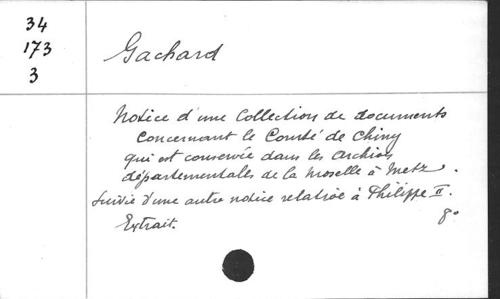 34
173
3
Gachard
Notice d'une Collection de documents
Concernant le Comté de Chiny
qui est conservée dans les Archives
départementales de la Moselle à Metz.
Suivie d'une autre notice relative à Philippe II.
Extrait.
8°